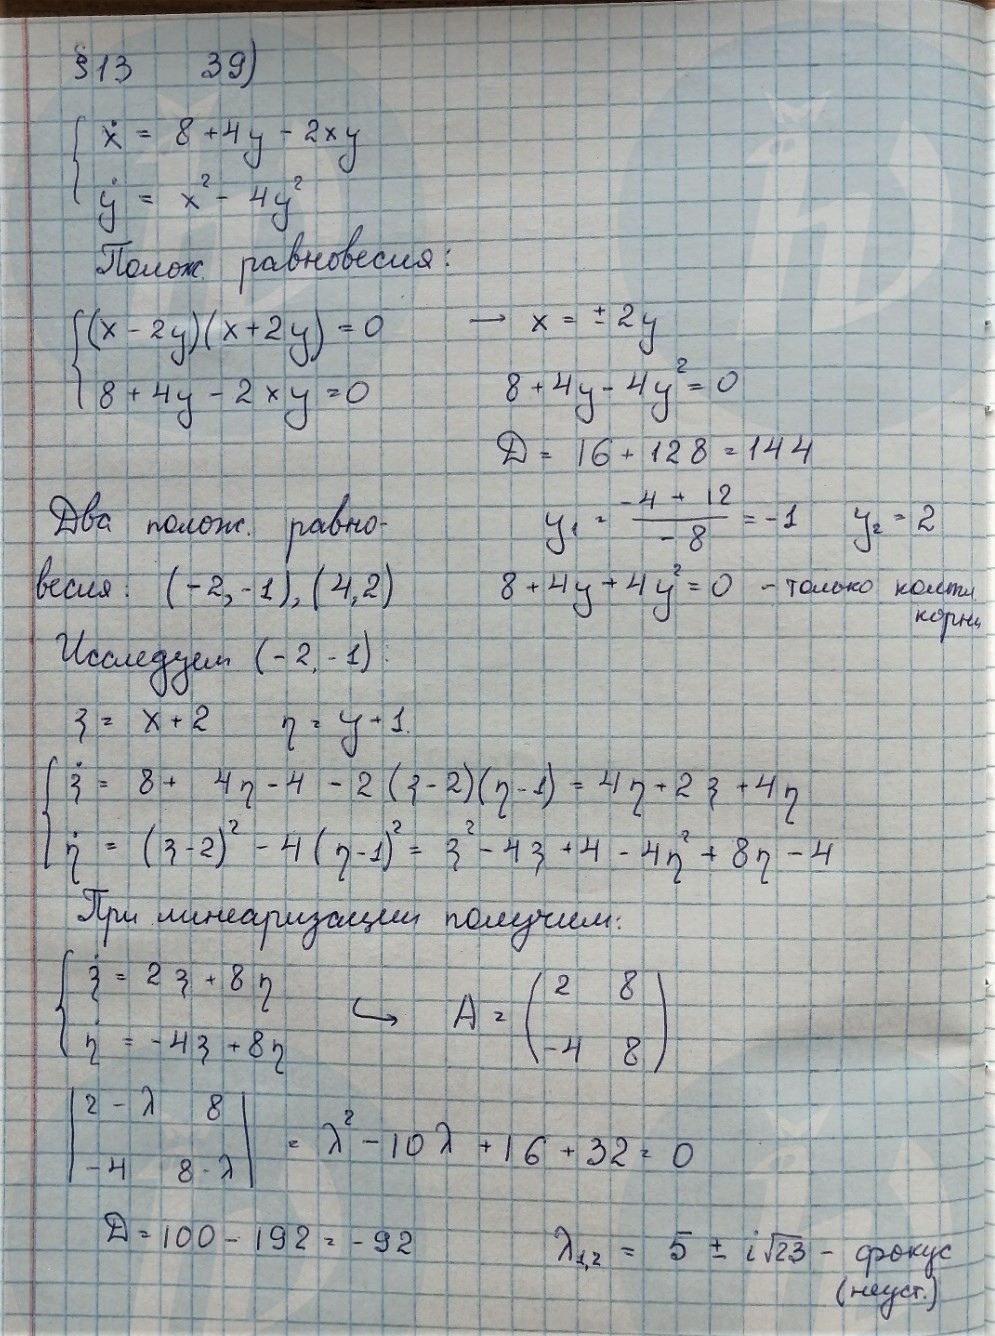 §13 39)
ẋ = 8 + 4y - 2xy
ẏ = x² - 4y²
Полож. равновесия:
(x - 2y)(x + 2y) = 0 → x = ± 2y
8 + 4y - 2xy = 0 8 + 4y - 4y² = 0
D = 16 + 128 = 144
Два полож. равно- y₁ = (-4 + 12)/(-8) = -1 y₂ = 2
весия: (-2, -1), (4, 2) 8 + 4y + 4y² = 0 - только компл
корни
Исследуем (-2, -1):
ξ = x + 2 η = y + 1.
ξ̇ = 8 + 4η - 4 - 2(ξ - 2)(η - 1) = 4η + 2ξ + 4η
η̇ = (ξ - 2)² - 4(η - 1)² = ξ² - 4ξ + 4 - 4η² + 8η - 4
При линеаризации получим:
ξ̇ = 2ξ + 8η ↪ A = (2 8
η̇ = -4ξ + 8η -4 8)
|2 - λ 8|
|-4 8 - λ| = λ² - 10λ + 16 + 32 = 0
D = 100 - 192 = -92 λ₁,₂ = 5 ± i√23 - фокус
(неуст.)